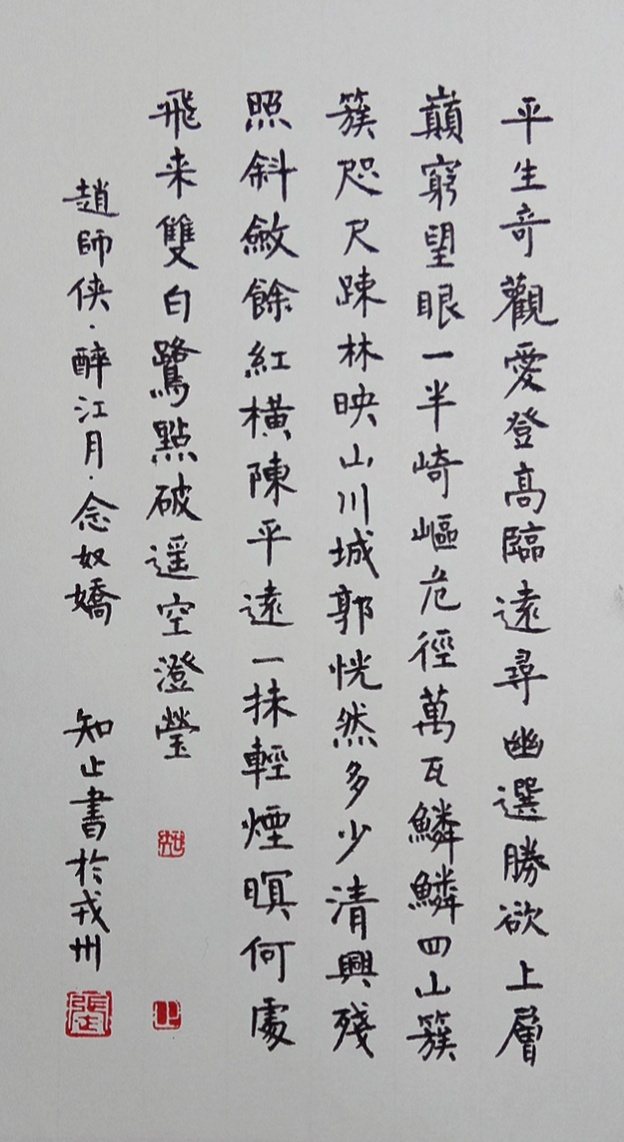 平生奇觀愛登高臨遠尋幽選勝欲上層
巔窮望眼一半崎嶇危徑萬瓦鱗鱗四山簇
簇咫尺踈林映山川城郭恍然多少清興殘
照斜斂餘紅橫陳平遠一抹輕煙暝何處
飛来雙白鷺點破遥空澄瑩
趙師侠·醉江月·念奴嬌 知止書於戎州